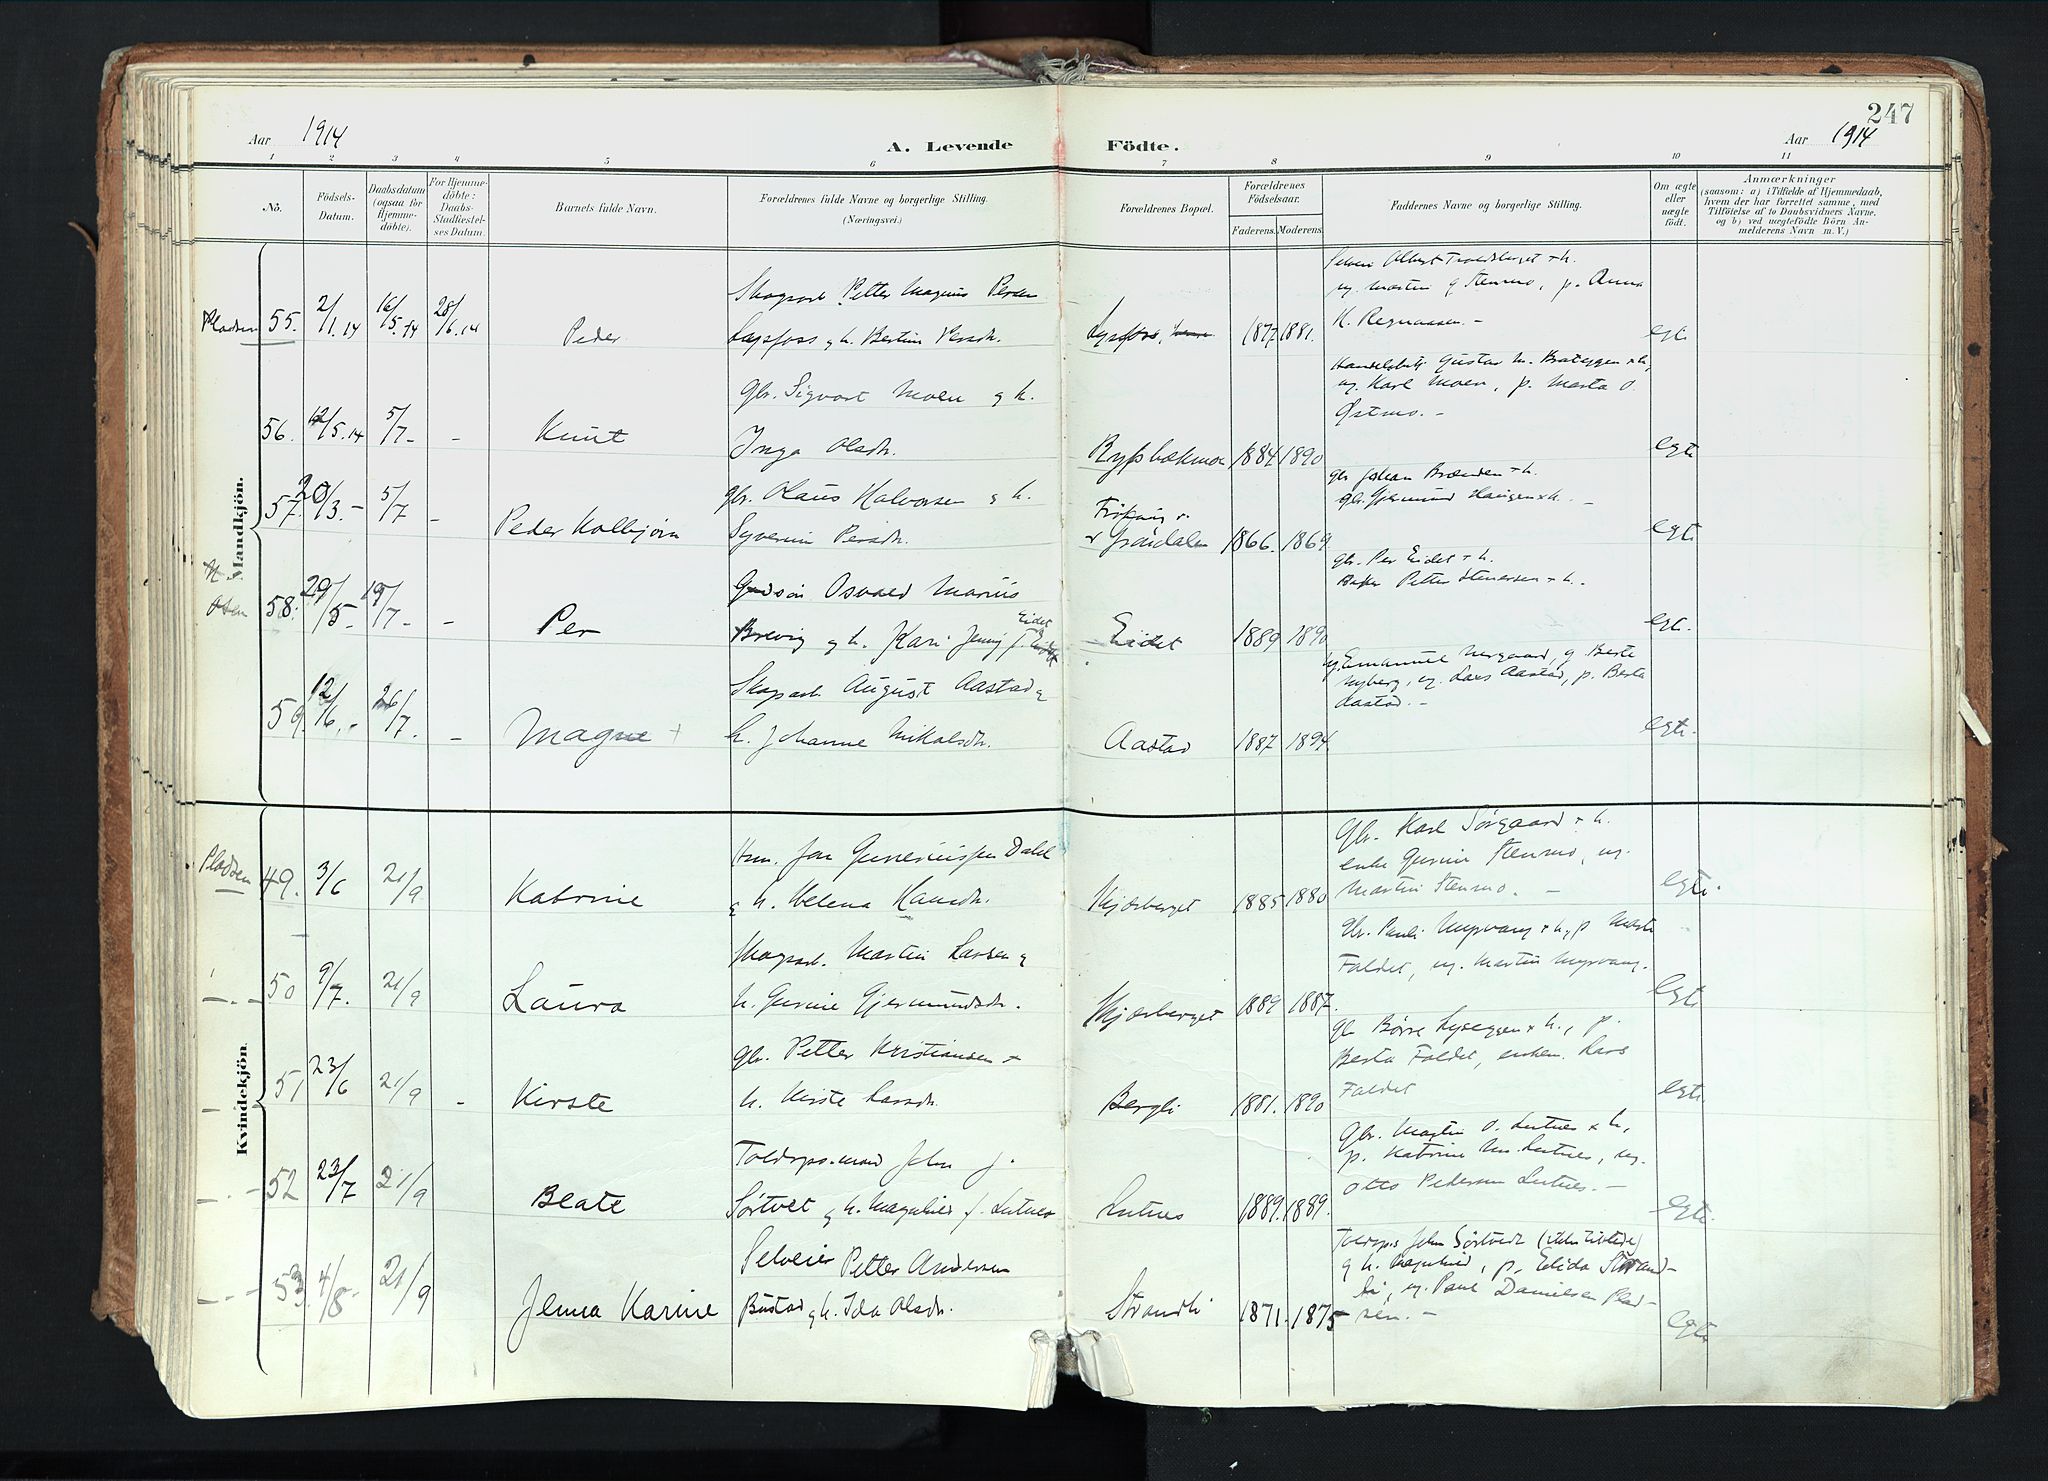 247
Aar 1914
A. Levende
Födte.
Aar 1914
1 2 3 4 5 6 7 8 9 10 11
No.
Födsels-
Datum.
Daabsdatum
(ogsaa for
Hjemme-
döbte).
For Hjemme-
döbte:
Daabs-
Stadfæstel-
ses Datum.
Barnets fulde Navn.
Forældrenes fulde Navne og borgerlige Stilling.
(Næringsvei.)
Forældrenes Bopæl.
Forældrenes
Födselsaar.
Faderens. Moderens.
Faddernes Navne og borgerlige Stilling.
Om ægte
eller
uægte
født.
Anmærkninger
(saasom: a) i Tilfælde af Hjemmedaab,
hvem der har forrettet samme, med
Tilföielse af to Daabsvidners Navne,
og b) ved uegtefödte Börn An-
melderens Navn m. V.)
Mandkjön.
Pladsen 55. 2/1.14 16/5.14 28/6.14 Peder
Skogsarb. Petter Magnus Persen
h. Bertine Persdr.
1877 1881. egte
Martin Stenmo, p. Anna
56. 12/5.14 5/7 - Knut
Gbr. Sigvart Moen g h.
Inga Olsdr.
1884 1890
Karl Moen, p. Marta O.
Østmo. -
egte
57. 20/3.- 5/7 - Peder Kolbjörn
gbr. Olaus Halvorsen g h.
Syverine Persdr.
1866. 1869
gbr. Johan Brænden + h.
gbr. Gjermund Haugen + h. -
egte
Osen 58. 29/5- 19/7- - Per
Osvald Marius
Brevig g h. Kari Jenny f. Eidet
Eidet 1889 1890
gbr. Per Eidet + h.
Petter Stenersen + h.
egte.
59. 12/6.- 26/7. - Magne +
Skogsarb. August Aastad g
h. Johanne Nikolsdr.
Aastad 1887 1894
Emanuel Nergaard, g Berte
Nyberg, ug. Lars Aastad, p. Berta
Aastad. -
egte.
Kvindekjön.
Pladsen 49. 3/6 21/9 Katrine
Dahl
g h. Helena Hansdr.
Skjærberget 1885 1880
Gbr. Karl Sörgaard + h.
enke Gurine Stenmo, ug.
Martin Stenmo. -
egte.
- " - 50 9/7. 21/9 Laura
Skogsarb. Martin Larsen g
h. Gurine Gjermundsdr.
Skjærberget 1889 1887.
Gbr. Pauli Nysvang + h, p Marte
Faldet, ug. Martin Nysvang.
egte
- 51 23/6 21/9 - Kirste
gbr. Petter Kristiansen +
h. Kirste Larsdr.
Bergli 1881. 1890
gbr Börre Lyseggen + h., p.
Berta Faldet, enkem. Lars
Faldet
egte
- " - 52 23/7 21/9 Beate
Toldops.mand John J.
Sörtvet g h. Magnhild f. Lutnes
Lutnes 1889. 1889.
Gbr. Martin O. Lutnes + h,
p. Katrine M. Lutnes, ug.
Otto Pedersen Lutnes. -
egte.
- " - 53. 4/8- 21/9 Jenna Karine
Selveier Petter Andersen
Bustad g h. Ida Olsdr.
Strandli 1871. 1875
Toldops John Sörtvedt (ikke tilstede)
g h. Magnhild, p. Elida Strand-
li, ug. Paul Danielsen Plad-
sen. -
egte